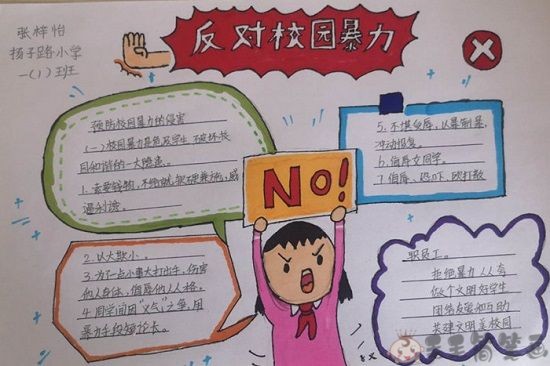 张梓怡
扬子路小学
一(1)班
反对校园暴力
预防校园暴力的侵害
(一)校园暴力是危及学生
和谐的一大隐患。
1.索要钱物,不给就
逼利诱。
2.以大欺小。
3.为了一点小事大打出手,伤害
他人身体,侮辱他人人格。
4.同学间因"义气"之争,用
暴力手段
NO!
5.不堪受辱,以暴制暴,
冲动报复。
6.侮辱女同学。
7.侮辱、恐吓、殴打教
职员工。
拒绝暴力人人夸
做个文明好学生
团结友爱和互助
共建文明美校园
天天简笔画